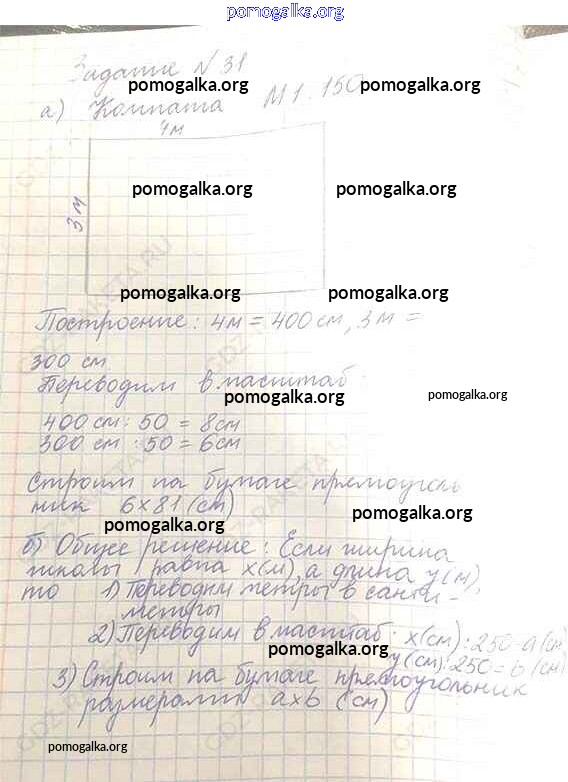 pomogalka.org
Задание N 31
pomogalka.org pomogalka.org
а) Комната М 1:150
4м
pomogalka.org pomogalka.org
3 м
GDZ-RAKETA.RU
pomogalka.org pomogalka.org
Построение: 4м = 400 см, 3 м =
300 см
Переводим в масштаб:
pomogalka.org pomogalka.org
400 см : 50 = 8 см
300 см : 50 = 6 см
Строим на бумаге прямоуголь
ник 6х81 (см)
pomogalka.org pomogalka.org
б) Общее решение: Если ширина
равна х(м), а длина у(м),
то 1) Переводим метры в санти-
метры
2) Переводим в масштаб: х(см):250=а(см)
pomogalka.org у(см):250=b(см)
3) Строим на бумаге прямоугольник
размерами ахb (см)
pomogalka.org